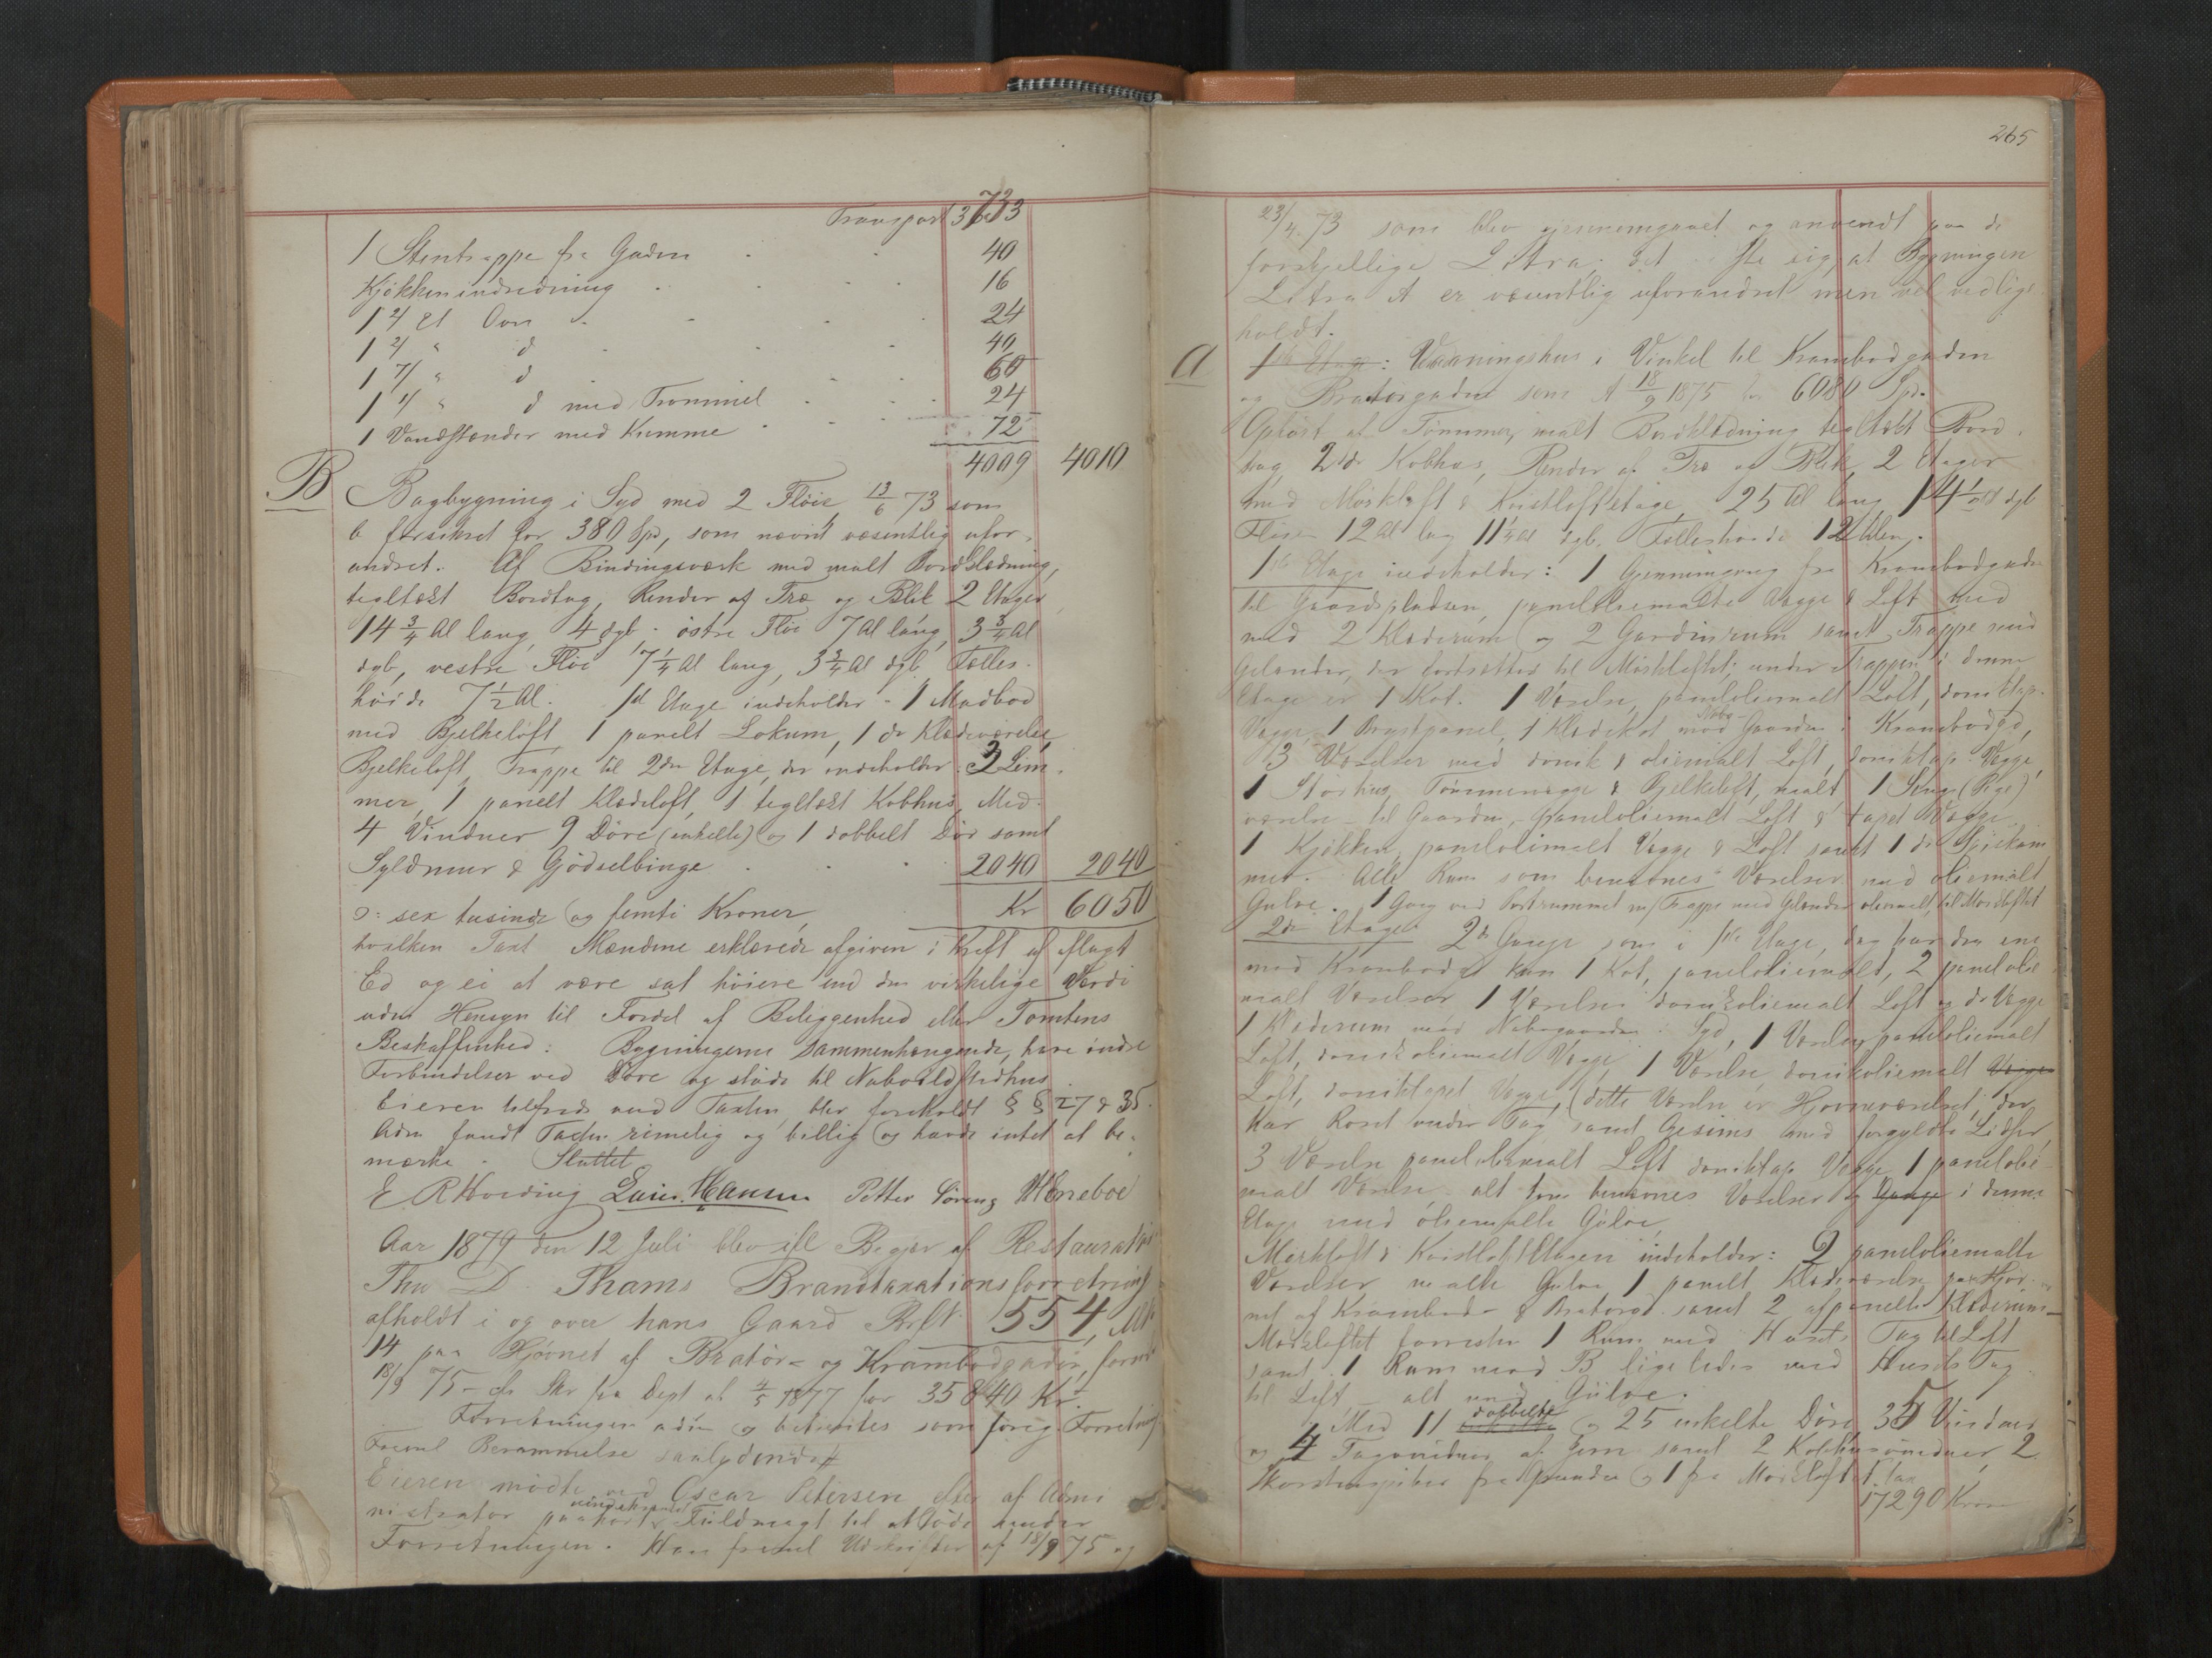 Transport 3733
1 Stentrappe fra Gaden 40
Kjökkenindredning 16
1 2/ Et Ovn 24
1 2/ " d 40
1 " d 60
1 " d med Trommel 24
1 Vandstender med Kumme 72
4009 4010
B Bagbygning i Syd med 2 Flöie 13/6 73 som
b forsikret for 380 Spd, som nævnt væsentlig ufor-
andret. Af Bindingsværk med malt Bordklædning,
tegltækt Bordtag, Render af Træ og Blik 2 Etager,
14 3/4 Al lang, 4 dyb. östre Flöi 7 Al lang, 3 3/4 Al
dyb, vestre Flöi 7 1/4 Al lang, 3 3/4 Al dyb. Fælles-
höide 7 1/2 Al. 1ste Etage indeholder - 1 Madbod
med Bjelkeloft, 1 panelt Lokum, 1 do Klædeværelse
Bjelkeloft, Trappe til 2den Etage, der indeholder: 2 Lem-
mer, 1 panelt Klædeloft, 1 tegltækt Kobhus, Med
4 Vinduer 9 Döre (enkelte) og 1 dobbelt Dör samt
Syldmur & Gjödselbinge 2040 2040
ɔ: sex tusinde og femti Kroner, Kr 6050
hvilken Taxt Mændene erklærede afgiven i Kraft af aflagt
Ed og ei at være sat höiere end den virkelige Værdi
uden Hensyn til Fordel af Beliggenhed eller Tomtens
Beskaffenhed: Bygningerne sammenhængende, have indre
Forbindelser ved Döre og stöde til Naboildstedhus.
Eieren tilfreds med Taxten, blev foreholdt § § 27 & 35.
Adm fandt Taxten rimelig og billig og havde intet at be-
mærke. Sluttet
E R Hoeding Lars Hansen Petter Sörens Weneboe
Aar 1879 den 12 Juli blev ifl Begjær af Restauratör
Thv D. Thams Brandtaxationsforretning
afholdt i og over hans Gaard Brft. 554, Mt
14 paa Hjörnet af Bratör- og Krambodgaden, forrn
18/9 75 - ifr Skr fra Dept af 4/5 1877 for 35840 Kr.
Forretningen adm og betjentes som forrig Forretning
Freml Berammelse saalydende
Eieren mödte ved Oscar Petersen efter af Admi-
nistrator paaført Fuldmagt til at möde under
Forretningen. Han freml Udskrifter af 18/9 75 og
265
23/4 73 som blev gjennemgaaet og anvendt paa de
forskjellige Litra; det viste sig, at Bygningen
Litra A er væsentlig uforandret men vel vedlige-
holdt.
A 1ste Etage: Vaaningshus i Vinkel til Krambodgaden
og Bratörgaden som A 18/9 1875 for 6080 Spd.
Opfört af Tömmer, malt Bordklædning tegltækt Bord-
tag, 2de Kobhus, Render af Træ og Blik, 2 Etager
med Mörkloft & Kvistloftetage, 25 Al lang, 14 1/2 Al dyb
Flöien 12 Al lang 11 1/4 Al dyb. Fælleshöide 12 Alen.
1ste Etage indeholder: 1 Gjennemgang fra Krambodgaden
til Gaardspladsen, paneloliemalte Vægge & Loft med
med 2 Klæderum og 2 Gardinrum samt Trappe med
Gelænder, der fortsættes til Mörkloftet; under Trappen i denne
Etage er 1 Kot. 1 Værelse, paneloliemalt Loft, doniktap.
Vægge, 1 Brystpanel, 1 Klædekot mod Nabo-Gaarden i Krambodgd,
3 Værelser med donik & oliemalt Loft, doniktap. Vægge,
1 Störhus Tömmervægge & Bjelkeloft, malt, 1 Senge (Pige)
værelse - til Gaarden, paneloliemalt Loft & tapet Vægge,
1 Kjökken, paneloliemalt Vægge & Loft samt 1 do Spiskam-
mer. Alle Rum som benævnes Værelser med oliemalt
Gulve. 1 Gang ved Portrummet m/ Trappe med Gelænder oliemalt, til Mörkloftet
2den Etage 2de Gange som i 1ste Etage, dog har den ene
mod Krambodgd kun 1 Kot, paneloliemalt, 2 panelolie-
malt Værelser 1 Værelse donikoliemalt Loft og do Vægge
1 Klæderum mod Nabogaarden i Syd, 1 Værelse paneloliemalt
Loft, donikoliemalt Vægge, 1 Værelse donikoliemalt Vægge
Loft, doniktapet Vægge, (dette Værelse er Hjörneværelset, der
har Roset under Tag samt Gesims med forgyldte Lidser,
3 Værelser paneloliemalt Loft doniktap Vægge 1 panelolie-
malt Værelse. alt som benævnes Værelser og Gange i denne
Etage med oliemalte Gulve,
Mörkloft & Kvistloft Etagen indeholder: 2 paneloliemalte
Værelser m alte Gulve 1 panelt Klædeværelse paa Hjör-
net af Krambod- & Bratörgd. samt 2 afpanelte Klæderum -
Mörkloftet forresten 1 Rum med Husets Tag til Loft
samt 1 Rum mod B ligeledes med Husets Tag
til Loft - alt med Gulve.
Med 11 dobbelte og 25 enkelte Döre, 35 Vinduer
og 4 Tagvinduer af Jern samt 2 Kobhusvinduer, 2
Skorstenspiber fra Grunden og 1 fra Mörkloftet tax
17290 Kroner